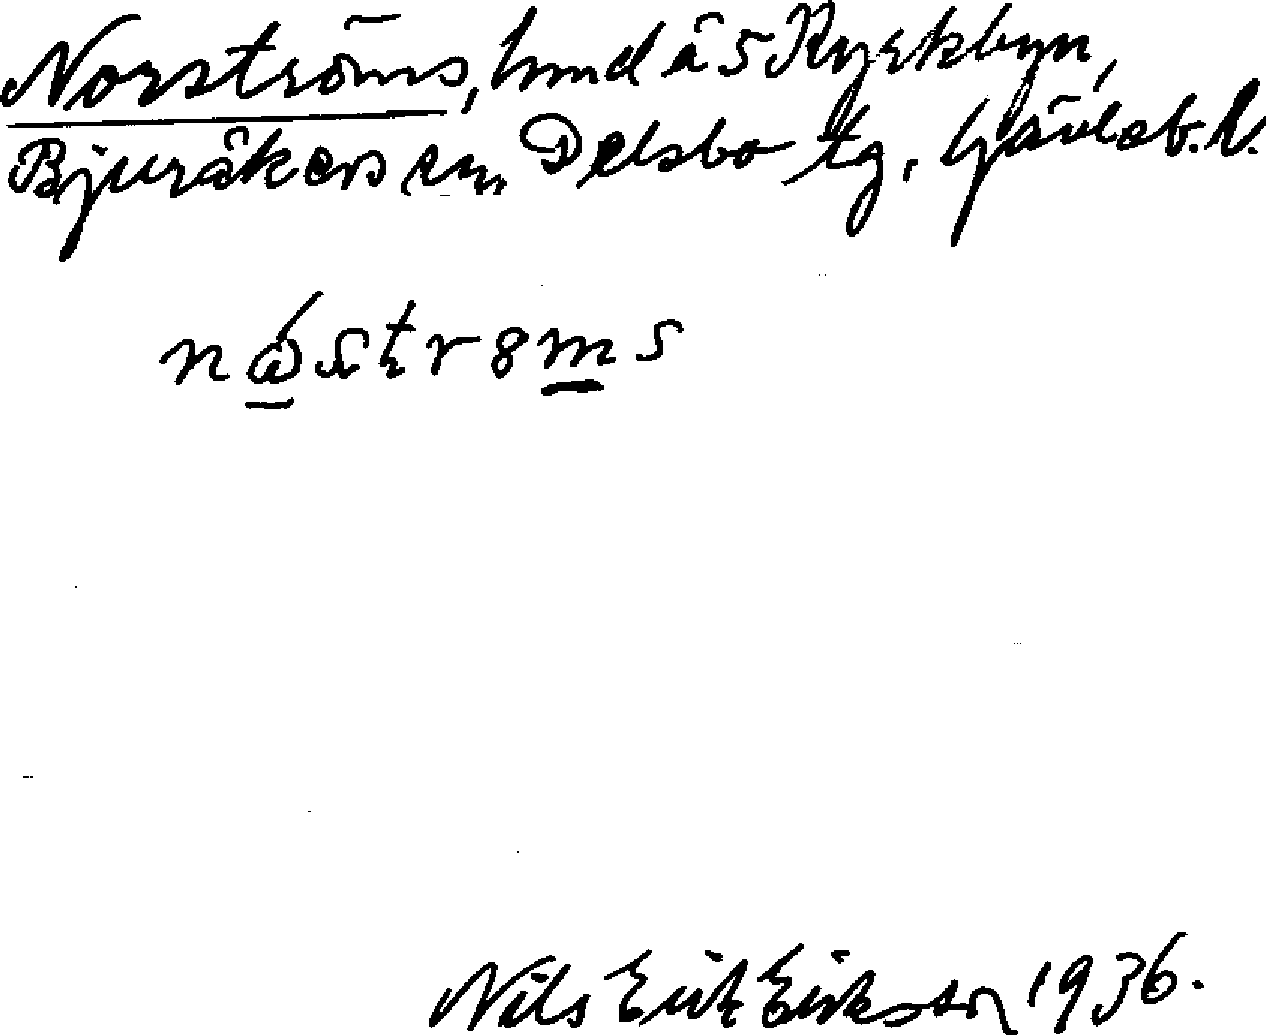 Norströms, hmd å 5 Kyrkbyn,
Bjuråkers sn, Delsbo tg, Gävleb. l.
nåstr8ms
Nils Erik Eriksson 1936.